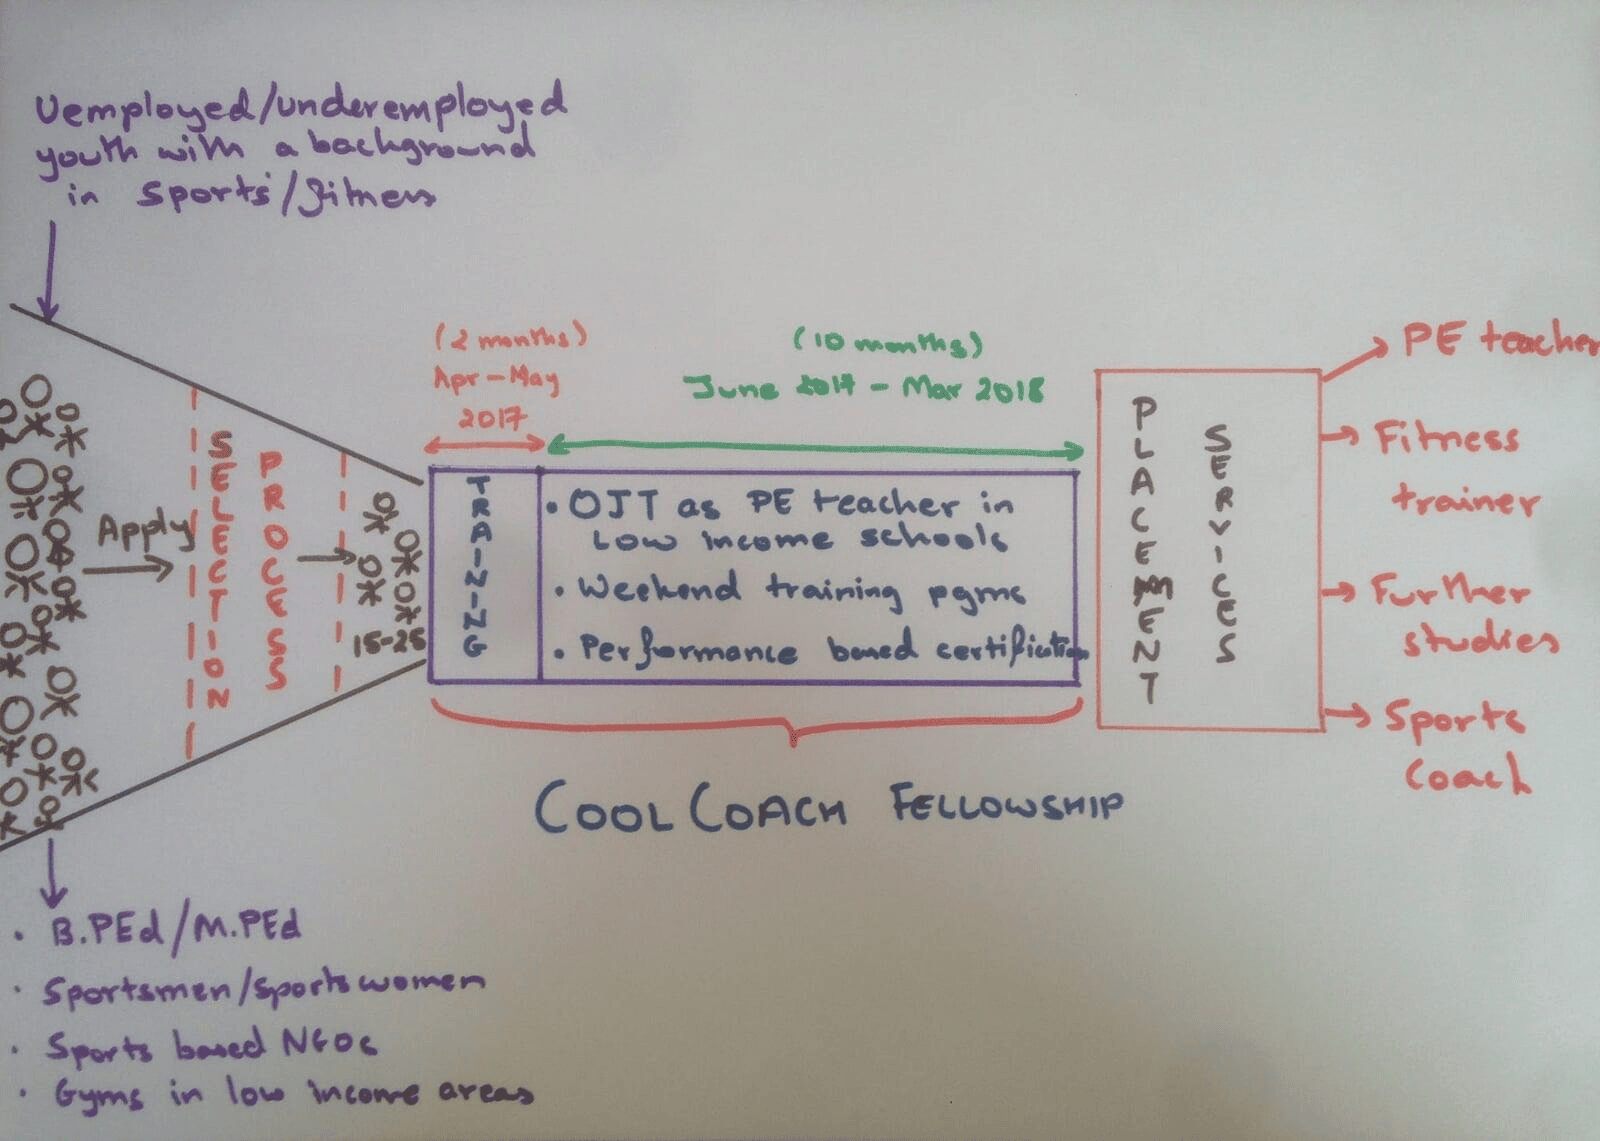 Uemployed/underemployed
youth with a background
in Sports/fitness
(2 months)
Apr-May
2017
(10 months)
June 2017 - Mar 2018
Apply
SELECTION
PROCESS
15-25
TRAINING
• OJT as PE teacher in
Low income schools
• Weekend training pgms
• Performance based certification
PLACEMENT
SERVICES
PE teacher
Fitness
trainer
Further
studies
Sports
Coach
COOL COACH FELLOWSHIP
• B.PEd/M.PEd
• Sportsmen/sportswomen
• Sports based NGOs
• Gyms in low income areas